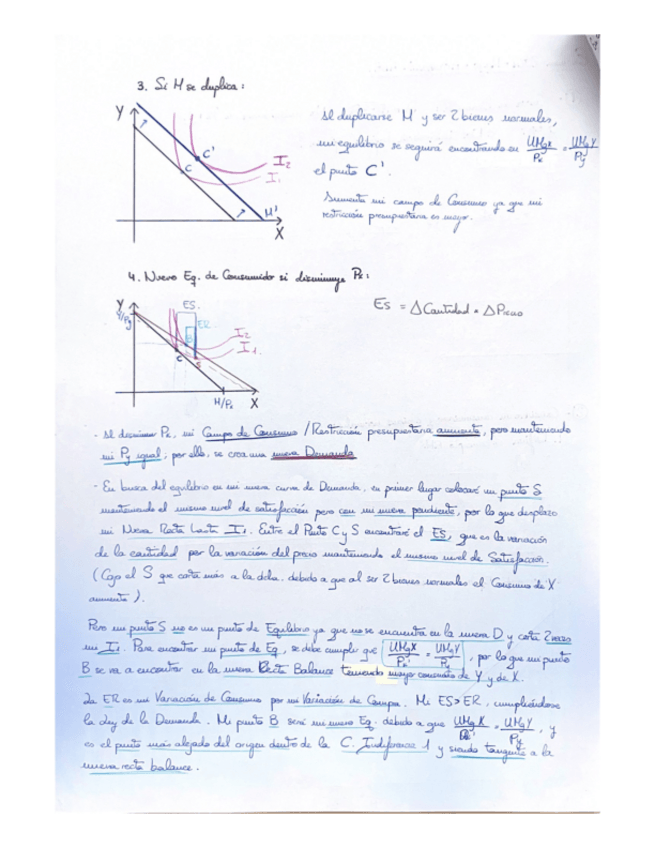 3. Si M se duplica:
Y
C'
C
I2
I1
M'
X
Al duplicarse M y ser 2 bienes normales,
mi equilibrio se seguirá encontrando en UMgX/Px = UMgY/Py
el punto C'.
Aumenta mi campo de Consumo ya que mi
restricción presupuestaria es mayor.
4. Nuevo Eq. de Consumido si disminuye Px:
Y
ES.
ER
I2
I1.
C
S
M/Px
X
ES = ΔCantidad * ΔPrecio
- Al disminuir Px, mi Campo de Consumo / Restricción presupuestaria aumenta, pero manteniendo
mi Py igual, por ello, se crea una nueva Demanda
- En busca del equilibrio en mi nueva curva de Demanda, en primer lugar colocaré un punto S
manteniendo el mismo nivel de satisfacción pero con mi nueva pendiente, por lo que desplazo
mi Nueva Recta hasta I1. Entre el Punto C y S encontraré el ES, que es la variación
de la cantidad por la variación del precio manteniendo el mismo nivel de Satisfacción.
(Cojo el S que corta más a la dcha. debido a que al ser 2 bienes normales el Consumo de X
aumenta).
Pero mi punto S no es un punto de Equilibrio ya que no se encuentra en la nueva D y corta 2 veces
mi I1. Para encontrar mi punto de Eq, se debe cumplir que UMgX/Px' = UMgY/Py, por lo que mi punto
B se va a encontrar en la nueva Recta Balance teniendo mayor consumo de Y y de X.
La ER es mi Variación de Consumo por mi Variación de Compra. Mi ES > ER, cumpliéndose
la Ley de la Demanda. Mi punto B será mi nuevo Eq. debido a que UMgX/Px' = UMgY/Py, y
es el punto más alejado del origen dentro de la C. Indiferencia 1 y siendo tangente a la
nueva recta balance.